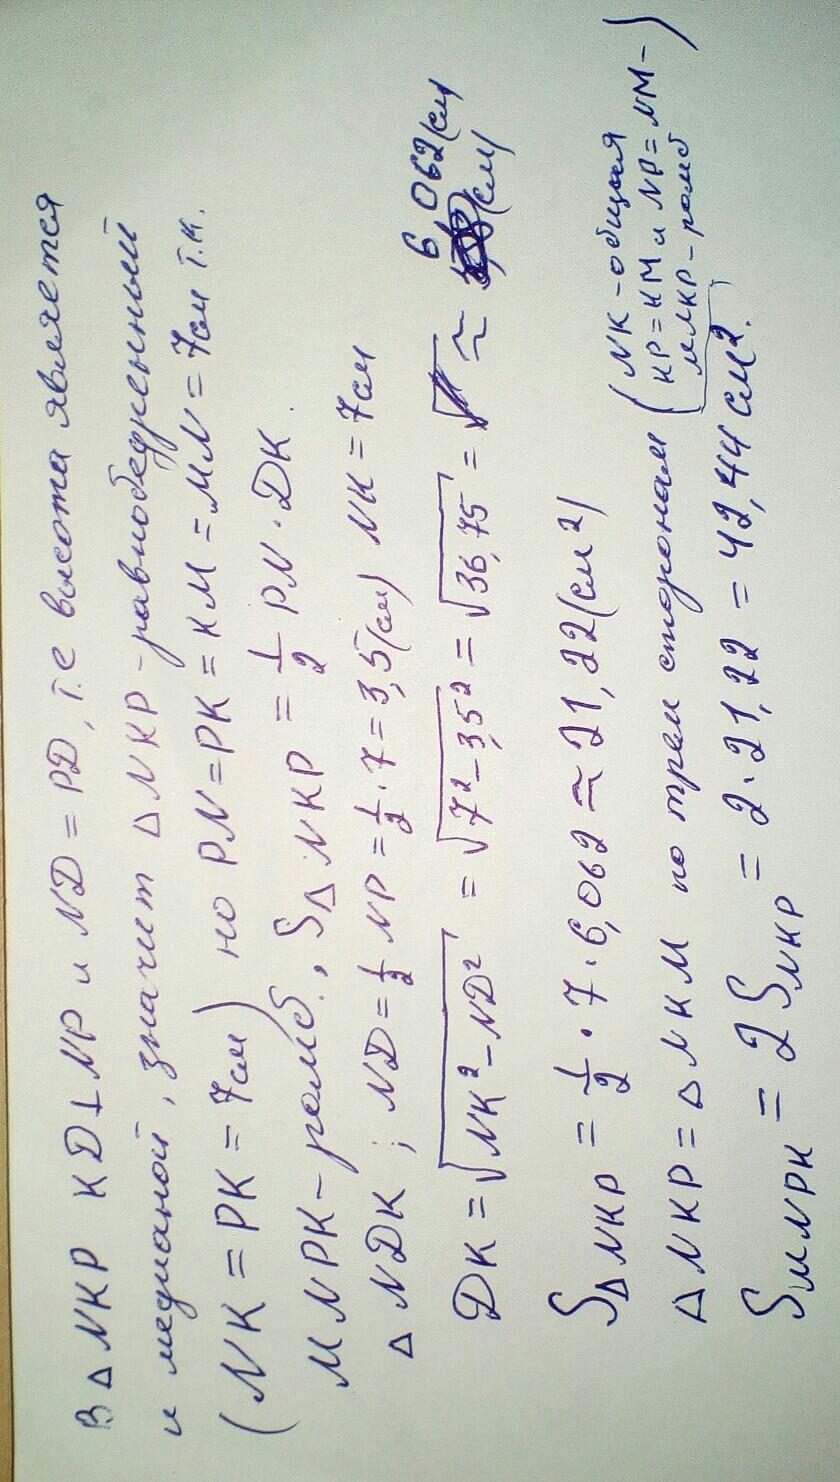 В △ NKP KD⊥NP и ND = PD, т.е высота является
и медианой, значит △ NKP - равнобедренный
(NK = PK = 7см) но PN = PK = KM = MN = 7см т.к.
MNPK - ромб., S△ NKP = 1/2 PN · DK.
△ NDK ; ND = 1/2 NP = 1/2 · 7 = 3,5(см) NK = 7см
DK = √NK² - ND² = √7² - 3,5² = √36,75 = √ ≈ 6,062(см)
(см)
S△ NKP = 1/2 · 7 · 6,062 ≈ 21,22(см²)
△ NKP = △ NKM по трем сторонам (NK - общая
KP = KM и NP = NM -
MNKP - ромб)
SMNPK = 2 SNKP = 2 · 21,22 = 42,44 см².